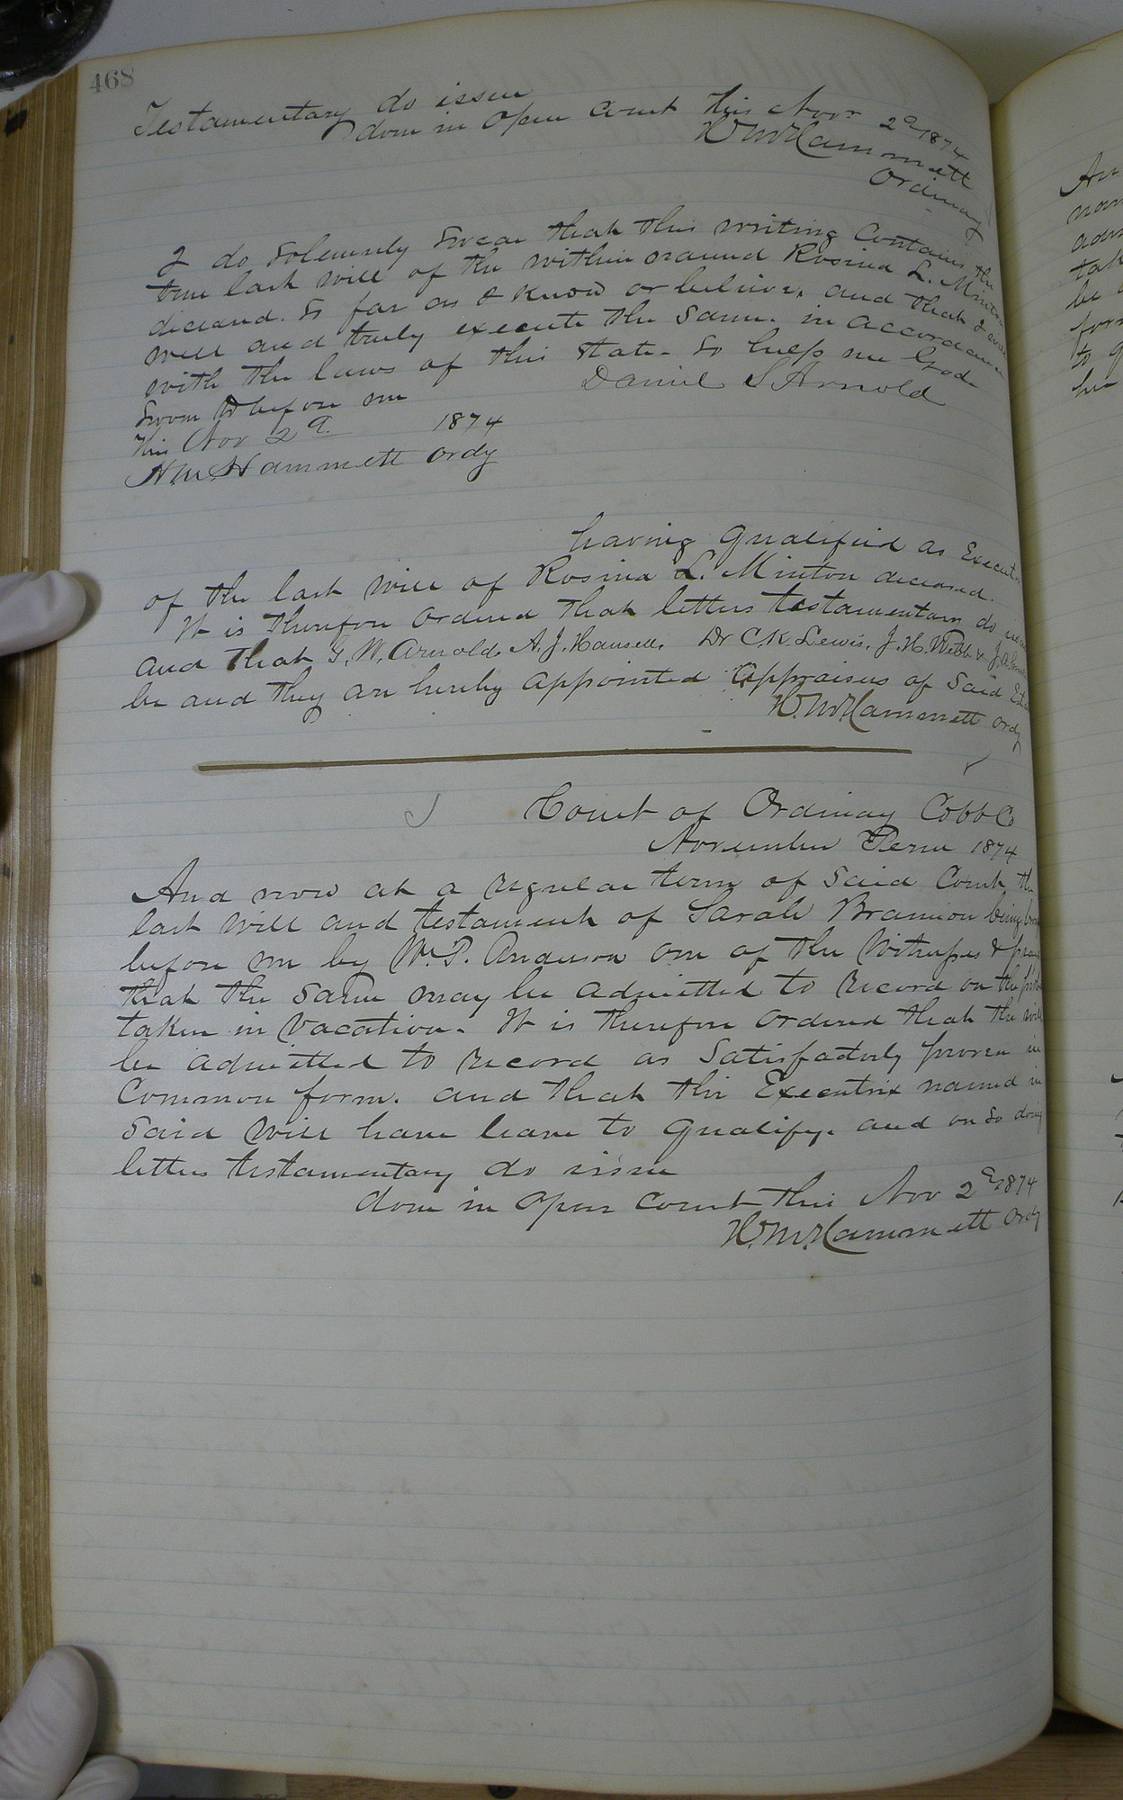 468
Testamentary do issue
done in open court this Nov 2d 1874
W M Hammett
Ordinary
I do solemnly swear that this writing contains the
true last will of the within named Rosina L. Minton
deceased. So far as I know or believe, and that I will
well and truly execute the same. in accordance
with the laws of this state. So help me God.
Daniel S Arnold
Sworn to before me
this Nov 2d 1874
H M Hammett Ordy
having qualified as Execut
of the last will of Rosina L. Minton deceased.
It is therefore ordered that letters testamentary do issue
and that G. W. Arnold, A. J. Hansell, Dr C. K. Lewis, J. H. Webb & J. A.
be and they are hereby appointed appraisers of said
H. M. Hammett Ordy
Court of Ordinary Cobb Co
November Term 1874
And now at a regular term of said Court the
last will and testament of Sarah Brannon being
before me by W. P. Anderson one of the witnesses &
that the same may be admitted to record on the
taken in vacation. It is therefore ordered that the will
be admitted to record as satisfactorily proven in
Common form. and that the Executrix named in
said will have leave to qualify. and on so doing
letters testamentary do issue
done in open court this Nov 2d 1874
H. M. Hammett Ordy
to
be